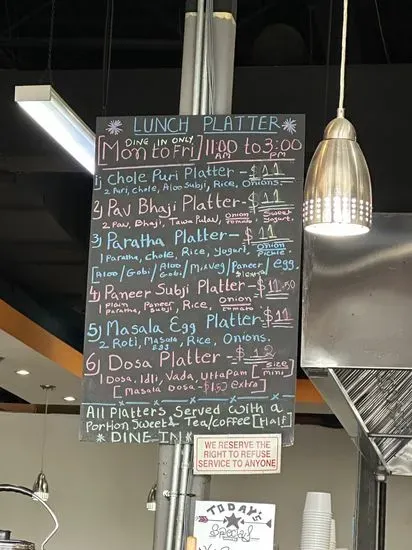 LUNCH PLATTER
DINE IN ONLY
[Mon to Fri] 11:00 AM to 3:00 PM
1) Chole Puri Platter - $11
2 Puri, Chole, Aloo Subji, Rice, Onions.
2) Pav Bhaji Platter - $11
2 Pav, Bhaji, Tawa Pulav, Onion Tomato, Sweet Yogurt.
3) Paratha Platter - $11
1 Paratha, Chole, Rice, Yogurt, Onion Pickle.
[Aloo/Gobi/Aloo Gobi/Mixveg/Paneer/egg.
4) Paneer Subji Platter - $11.50
1 Plain Paratha, Paneer Subji, Rice, Onion Tomato.
5) Masala Egg Platter - $11
2 Roti, Masala Egg, Rice, Onions.
6) Dosa Platter - $12
1 Dosa, Idli, Vada, Uttapam [size mini]
[Masala Dosa - $1.50 extra]
All Platters Served with a
Portion Sweet & Tea/Coffee [Half]
* DINE IN *
WE RESERVE THE
RIGHT TO REFUSE
SERVICE TO ANYONE
TODAY'S
Special